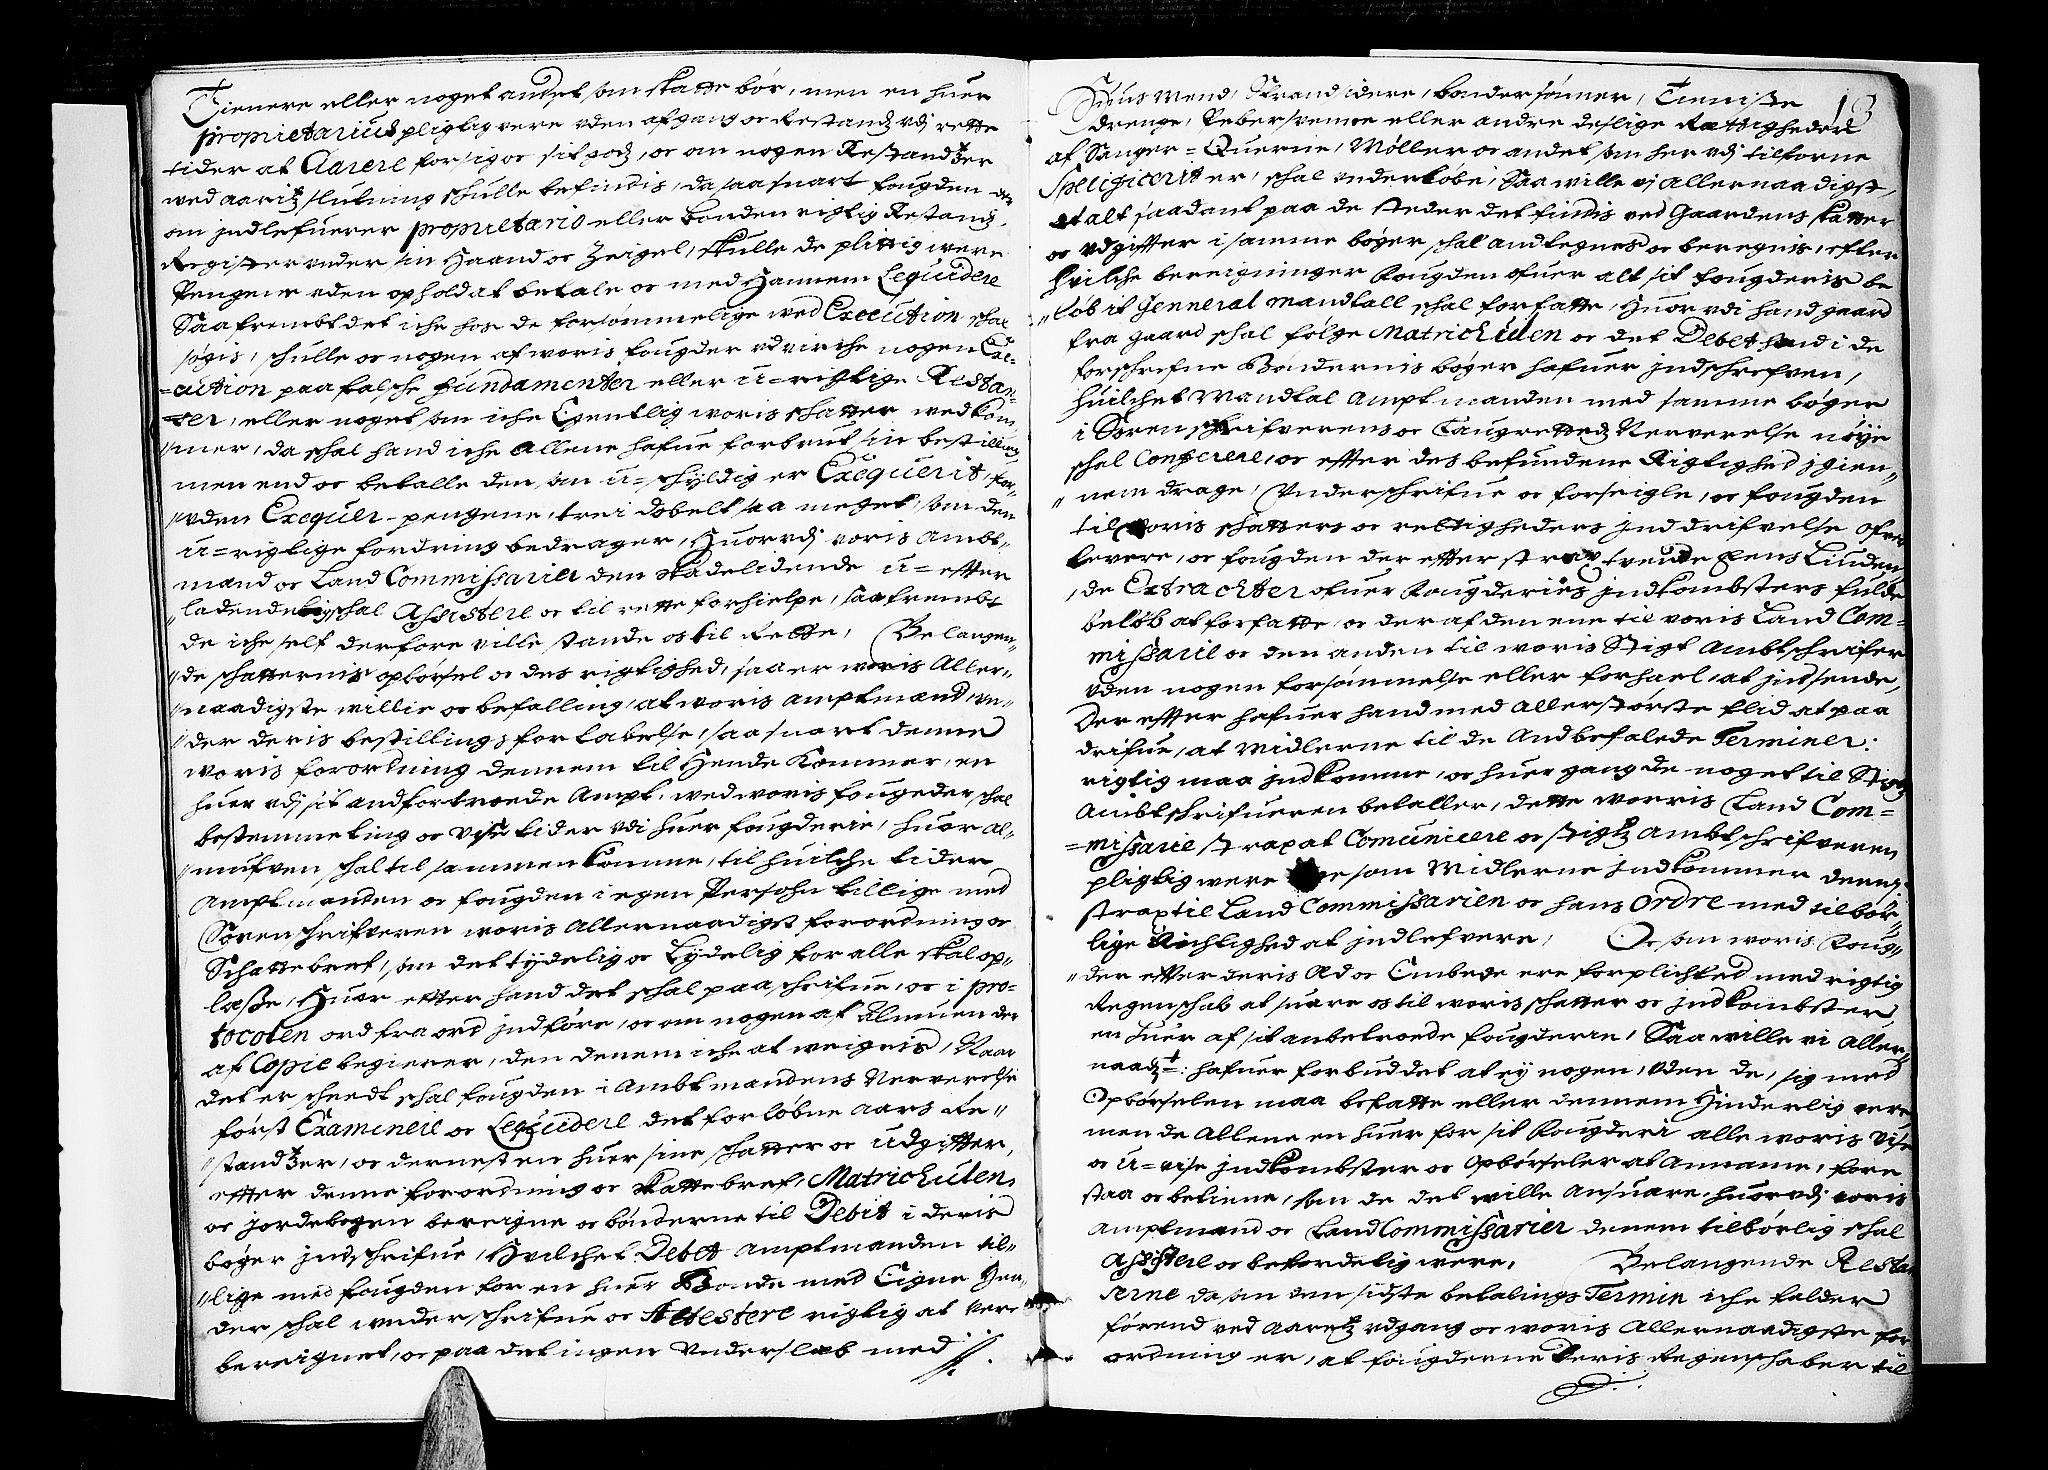 Tienere eller noget andet som skatte bør, men en huer
proprietarius pligtig vere uden afgang oc Restandz udj rette
tider at Clarere for sig oc sit godz, oc om nogen Restandtzer
ved aaritz slutning schulle befindis, da saa snart fougden
om jndlefuerer proprietario eller bonden rigtig Restandz
Register under sin Haand oc Zeigel, skulle de plittig were
Pengene uden ophold at betale oc med Hannem Leqvidere
Saafrembt det iche hos de forsømmelige wed Execution schal
søgis, schulle oc nogen af woris fougder udvirche nogen Exe-
=cution paa falsche fundamenter eller u=rigtige Restan-
=ser, eller noget som iche Egentlig woris schatter wedkom
mer, da schal hand iche Allene hafue forbrut sin bestilling,
men end oc betalle den som u=schyldig er Exeqverit, for-
uden Exeqver-pengene, trei dobelt saa meget, som den
u=rigtige fordring bedrager, Huorudj voris Ambt-
mand oc Land Commissarier den skadelidende u=efter
ladendelig schal Assistere oc til rette forhielpe, saafrembt
de iche self derfore ville stande os til Rette, Belangen-
de schatternis opbørsel oc des rigtighed, saa er woris Aller-
naadigste willie oc befalling, at woris amptmænd, un-
der deris bestillings fortabelse, saa snart denne
Woris forordning dennem til Hende Kommer, en
huer udj sit andfortroede Ampt, wed woris fougeder, schal
bestemme ting oc visse tider udi huer fougderie, huor al-
muefven schal til sammen komme, til huilche tider
Amptmanden oc fougden i egen Persohn tillige med
Sorenschrifveren woris Allernaadigst forordning oc
Schattebref, som det tydelig oc Lydelig for alle skal op-
læsse, Huor efter hand det schal paaschrifue, oc i pro-
tocolen ord fra ord jndføre, oc om nogen af Almuen der
af Copie begierer, den denem iche at weigris, Naar
det er scheedt schal fougden i Ambtmandens Nerverelse
først Examinere oc Leqvidere det forløbne aars Re-
standtzer, oc dernest en huer sine schatter oc udgifter,
efter denne forordning oc skattebref, Matrichulen,
oc jordebogen bereigne oc bønderne til Debit i deris
bøger jndschrifue, Hvilchet Debet amptmanden til-
lige med fougden for en huer Bonde med Eigne Hen-
der schal underschrifue oc Attestere rigtig at vere
bereignet, oc paa det ingen Underslæb med
13
Huus mend, Strand idere, bondersønner, Tieniste
drenge, Pebersvenne eller andre deslige Rættigheder
af Sauger=Querne, Møller oc andet som her udj tilforne
Speligicerit er, schal underløbe, Saa wille vj allernaadigst,
at alt saadant paa de steder det findis ved Gaardens skatter
oc udgifter i samme bøger schal andtegnes oc beregnis, efter
hvilche bereigninger fougden ofuer alt sit fougderis be
løb it Jenneral mandtall schal forfatte, Huor udi hand gaard
fra gaard schal følge Matrichulen oc det Debet hand i de
forschrefne Bøndernis bøger hafuer jndschrefven,
Huilchet Mandtal Amptmanden med samme bøger
i Sorenschrifverens oc Laugrettedz Nerverelse nøye
schal Conferere, oc efter des befundene Rigtighed jgien-
nem drage, Underschrifue oc forseigle, oc fougden
til woris schatters oc rettigheders jnddrifvelse ofver
levere, oc fougden der efter strax tvende Eens Liuden
de Extracter ofuer fougderiis jndkombsters fulde
beløb at forfatte, oc der af den ene til voris Land Com=
missarie oc den anden til woris Stigt Ambtschrifer
uden nogen forsømmelse eller forhael, at jndsende,
Der efter hafuer hand med allerstørste flid at paa
drifue, at Midlerne til de Andbefalede Terminer:
rigtig maa jndkomme, oc huer gang de noget til Stigtz
Ambtschrifueren betaller, dette worris Land Com=
=missarie strax at Comunicere oc stigtz Ambtschrifveren
pligtig were som Midlerne jndkommer dennem
strax til Land Commissarien oc hans Ordre med tilbør-
lige Richtighed at jndlefvere, Oc som woris foug-
der efter deris Æd oc Embede ere forplichted med rigtig
Regenschab at suare os til woris schatter oc jndkombster
en huer af sit anbetroede fougderie, Saa wille vi Aller-
naadst: hafuer forbuddet at ey nogen, Uden de, sig med
Opbørselen maa befatte eller dennem Hinderlig vere
men de Allene en huer for sit fougderi alle woris Visse
oc u=visse jndkombster oc Opbørseler at Anname, fore
staa oc betiene, som de det wille Ansuare, huorudj voris
Amptmænd oc Land Commissarier denem tilbørlig schal
Assistere oc befordelig were, Belangende Restan
serne da som den sidste betalings Termin iche falder
førend ved Aaretz udgang oc woris Allernaadigste for
ordning er, at fougderne deris Regenschaber til